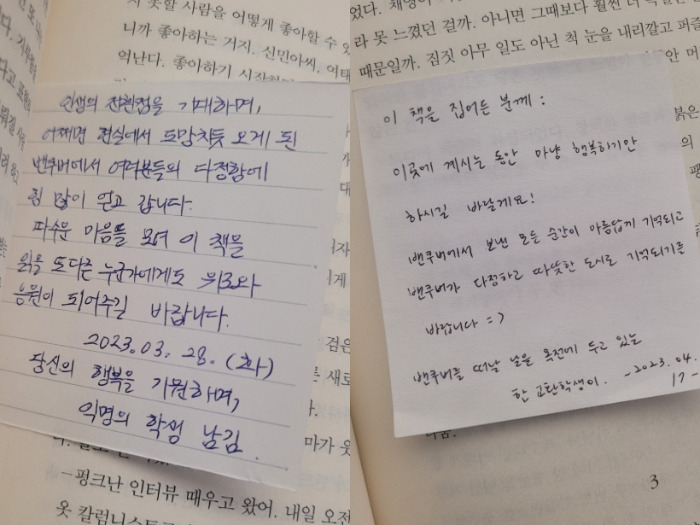 지 못할 사람을 어떻게 좋아할 수 있
니까 좋아하는 거지. 신민아씨, 이태
억난다. 좋아하기 시작
인생의 전환점을 기대하며,
어쩌면 현실에서 도망치듯 오게 된
밴쿠버에서 여러분들의 다정함에
힘 많이 얻고 갑니다.
따스운 마음들 모여 이 책을
읽을 또다른 누군가에게도 위로와
응원이 되어주길 바랍니다.
2023.03.28.(화)
당신의 행복을 기원하며,
익명의 학생 남김.
-펑크난 인터뷰 때우고 왔어. 내일 오전
옷 칼럼니스트
었다. 채영이
라 못 느꼈던 걸까. 아니면 그때보다 훨씬 더
때문일까. 짐짓 아무 일도 아닌 척 눈을 내리깔고 퍼즐
이 책을 집어든 분께 :
이곳에 계시는 동안 마냥 행복하기만
하시길 바랄게요!
밴쿠버에서 보낸 모든 순간이 아름답게 기억되고
밴쿠버가 다정하고 따뜻한 도시로 기억되기를
바랍니다 =)
밴쿠버를 떠날 날을 목전에 두고 있는
한 교환학생이. -2023.04.
17-
3